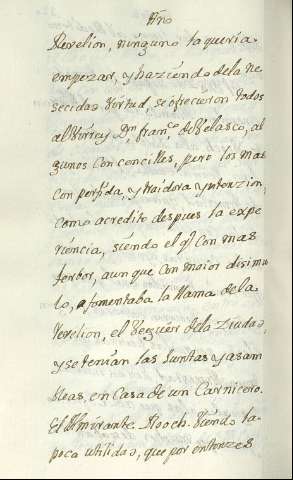 Año
Revelion, ninguno la queria
empezar, y haziendo de la Ne
secidad Virtud, se ofrecieron todos
al Virrey Dn. franco. de Velasco, al
gunos con cencilles, pero los mas
con perfida, y traidora yntenzion,
como acredito despues la expe
riencia, siendo el q.^ con mas
ferbor, aunque con maior disimu
lo, afomentaba la llama de la
revelion, el Veguer de la Ziudad,
y se tenian las Juntas y asam
bleas, en Casa de un Carnicero.
El Almirante Rooch. Viendo la
poca utilidad, que por entonzes